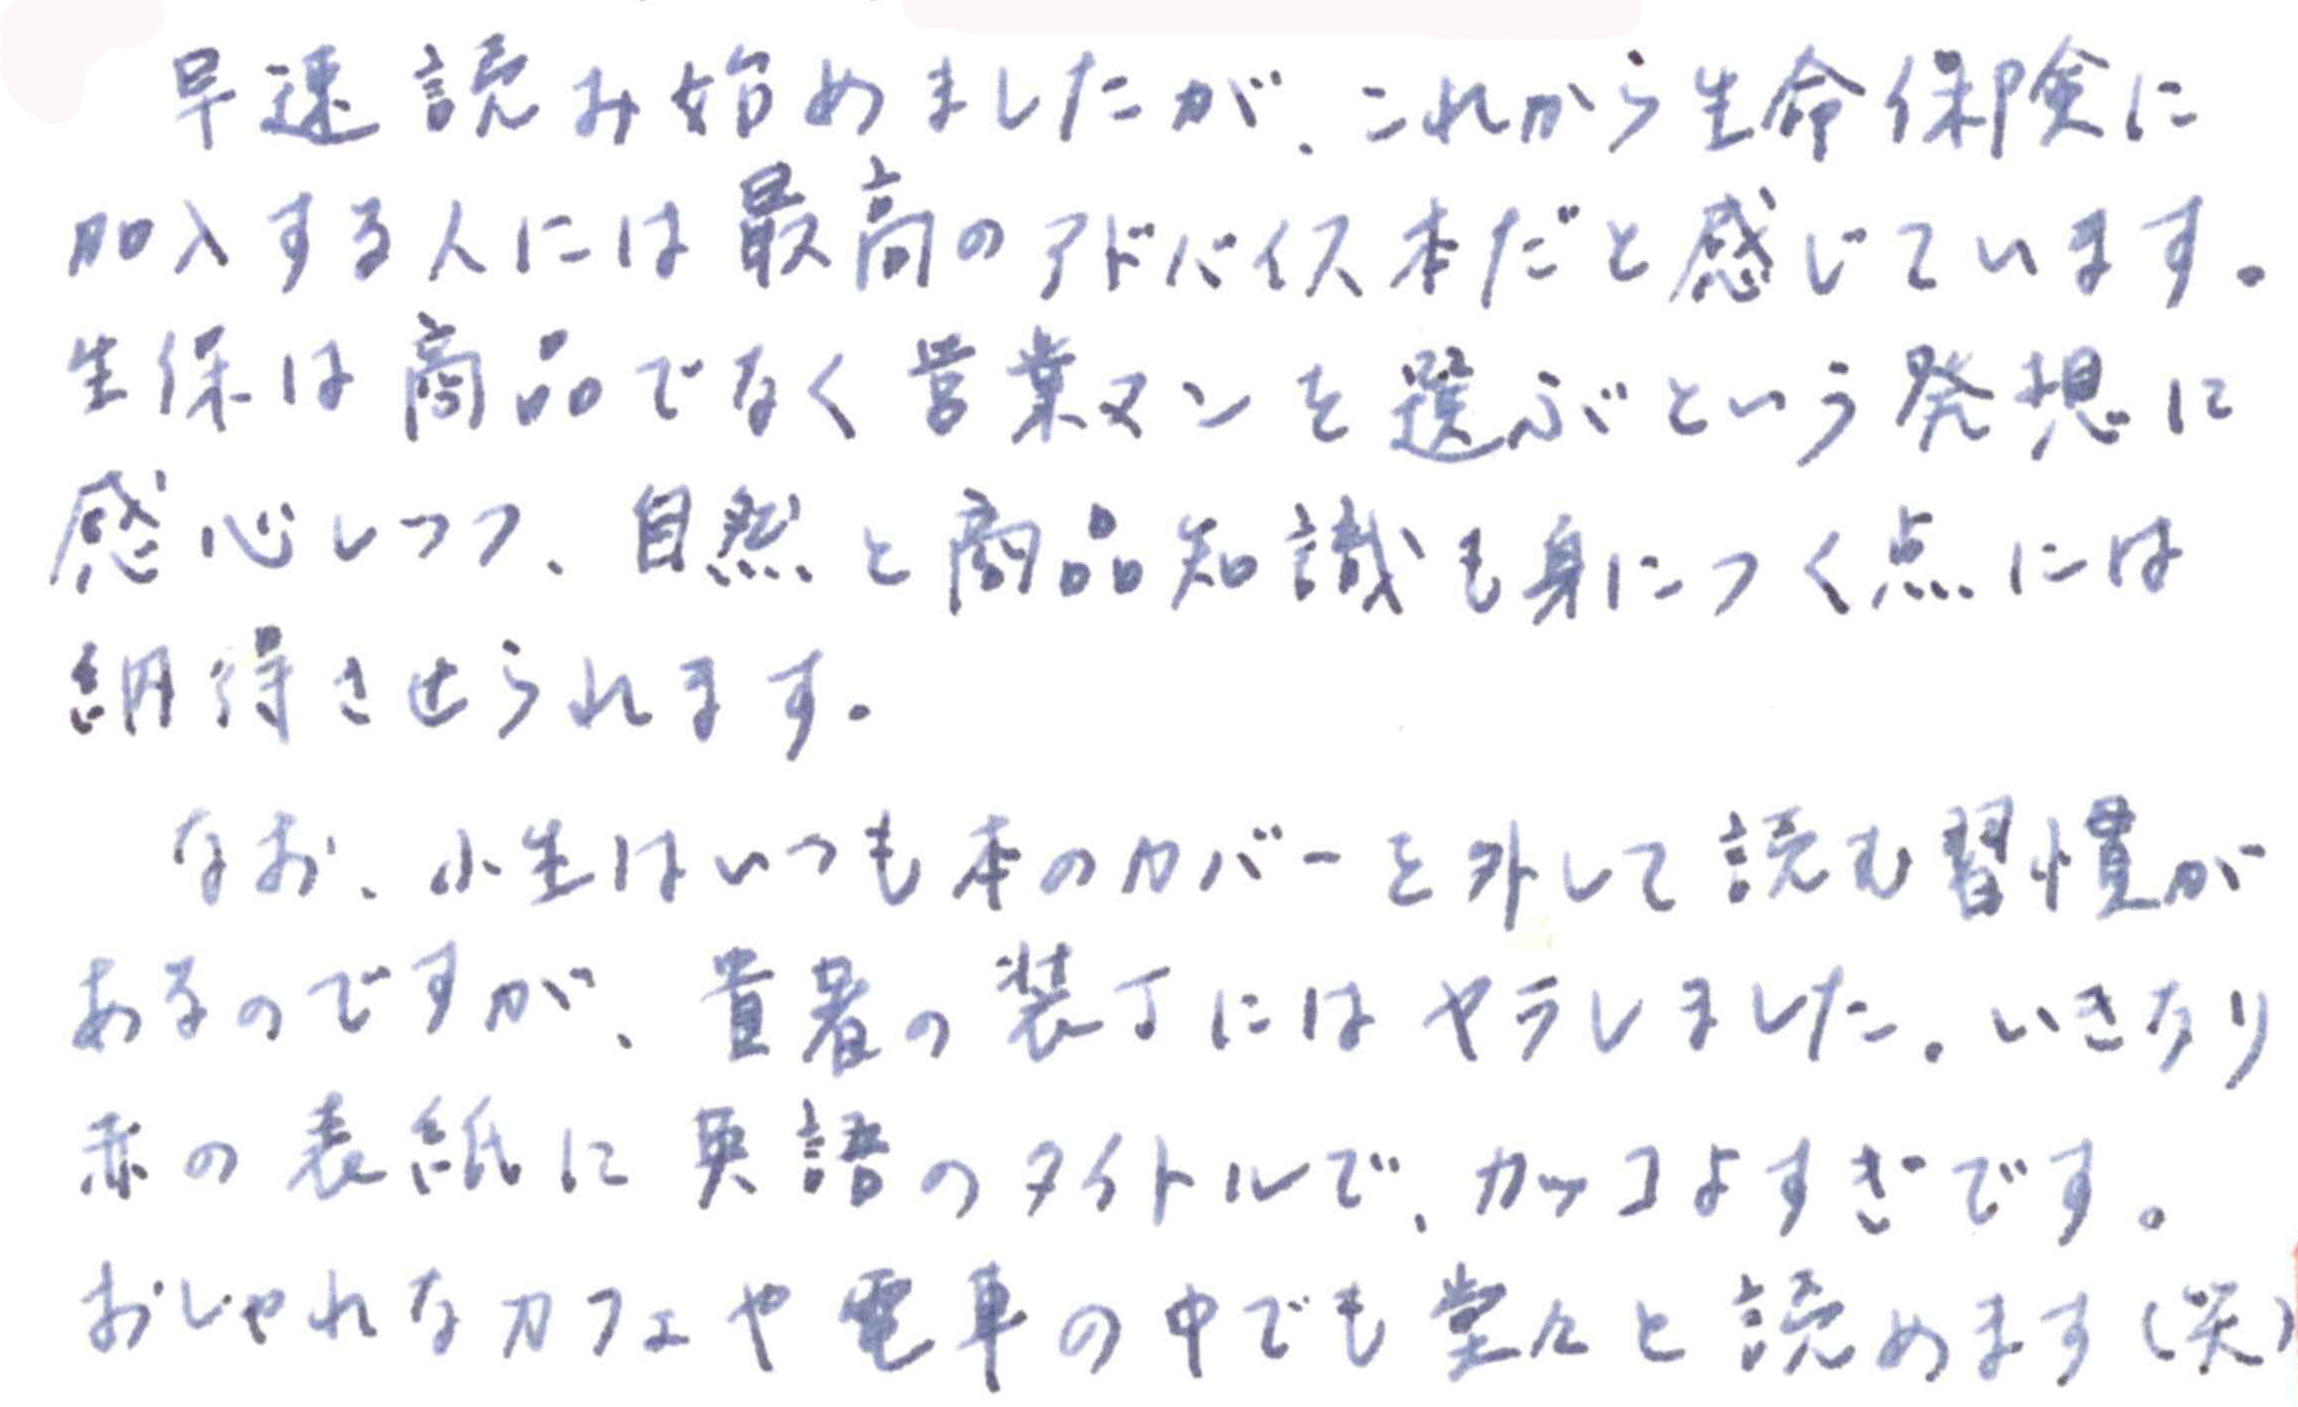 早速読み始めましたが、これから生命保険に
加入する人には最高のアドバイス本だと感じています。
生保は商品でなく営業マンを選ぶという発想に
感心しつつ、自然と商品知識も身につく点には
納得させられます。
なお、小生はいつも本のカバーを外して読む習慣が
あるのですが、貴著の装丁にはヤラレました。いきなり
赤の表紙に英語のタイトルで、カッコよすぎです。
おしゃれなカフェや電車の中でも堂々と読めます(笑)